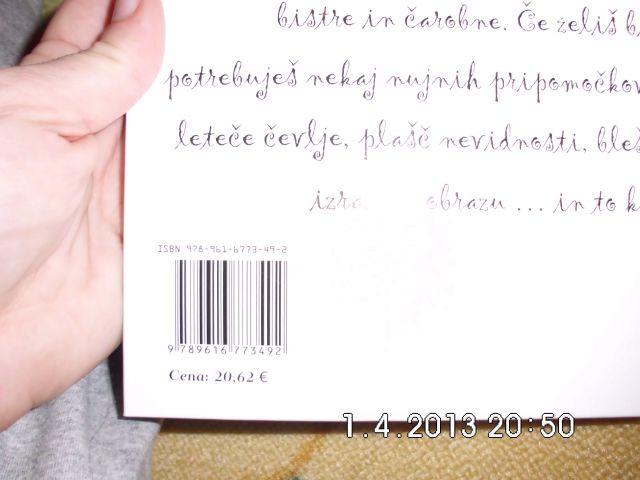 bistre in čarobne. Če želiš
potrebuješ nekaj nujnih pripomočkov
leteče čevlje, plašč nevidnosti,
obrazu ... in to
ISBN 978-961-6773-49-2
9 789616 773492
Cena: 20,62 €
1.4.2013 20:50